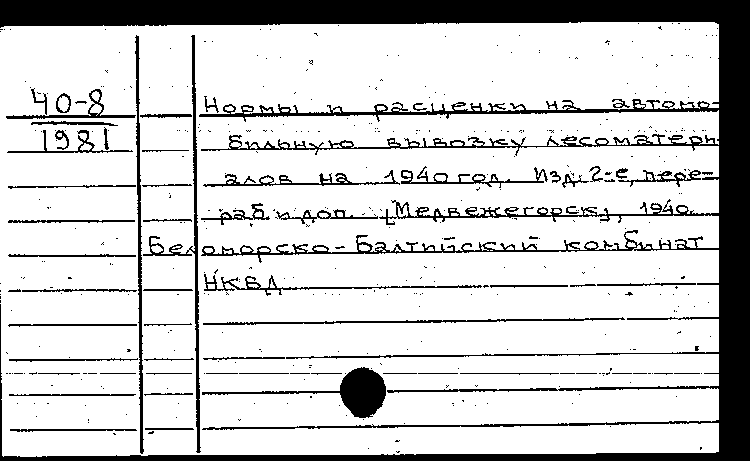 40-8
1981
Нормы и расценки на автомо-
бильную вывозку лесоматери-
алов на 1940 год. Изд. 2-е, пере-
раб. и доп. [Медвежегорск], 1940.
Беломорско-Балтийский комбинат
НКВД